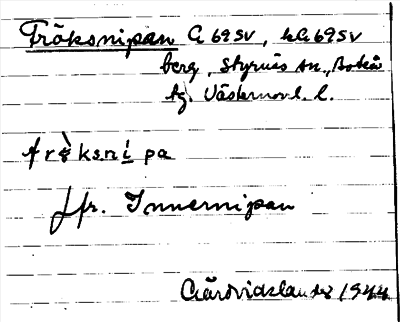 Fröksnipan G 69 SV, hG 69 SV
berg, Styrnäs sn., Boteå
tg. Västernorrl. l.
frὲksnípa
Jfr. Innernipan
Gärdvidslauder 1944